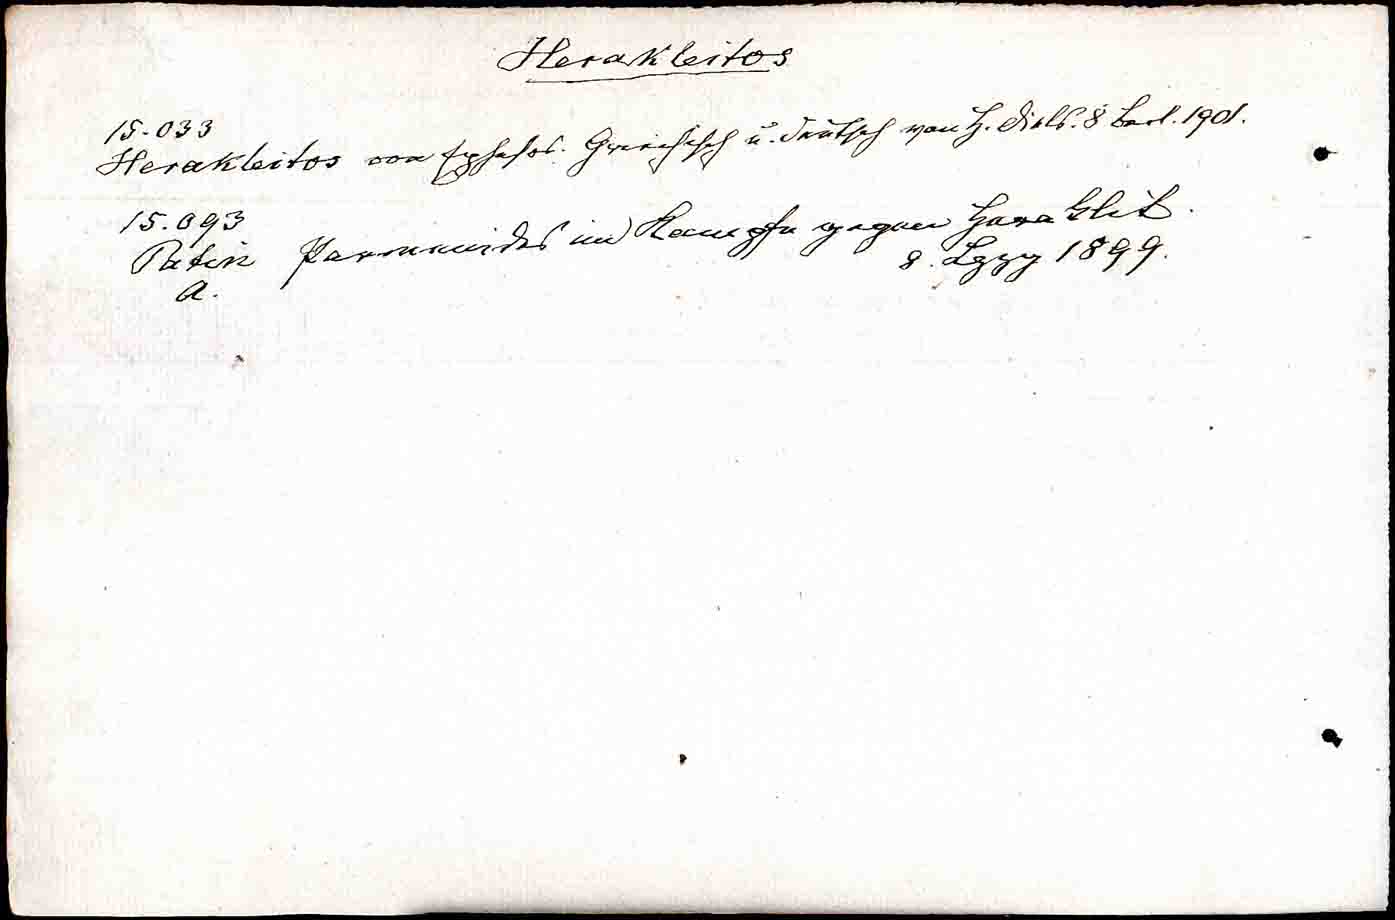 Herakleitos
15-033
Herakleitos von Ephesos. Griechisch u. deutsch von H. Diels. 8 Berl. 1901.
15.093
Patin Parmenides im Kampfe gegen Heraklit.
A. 8. Lpzg 1899.